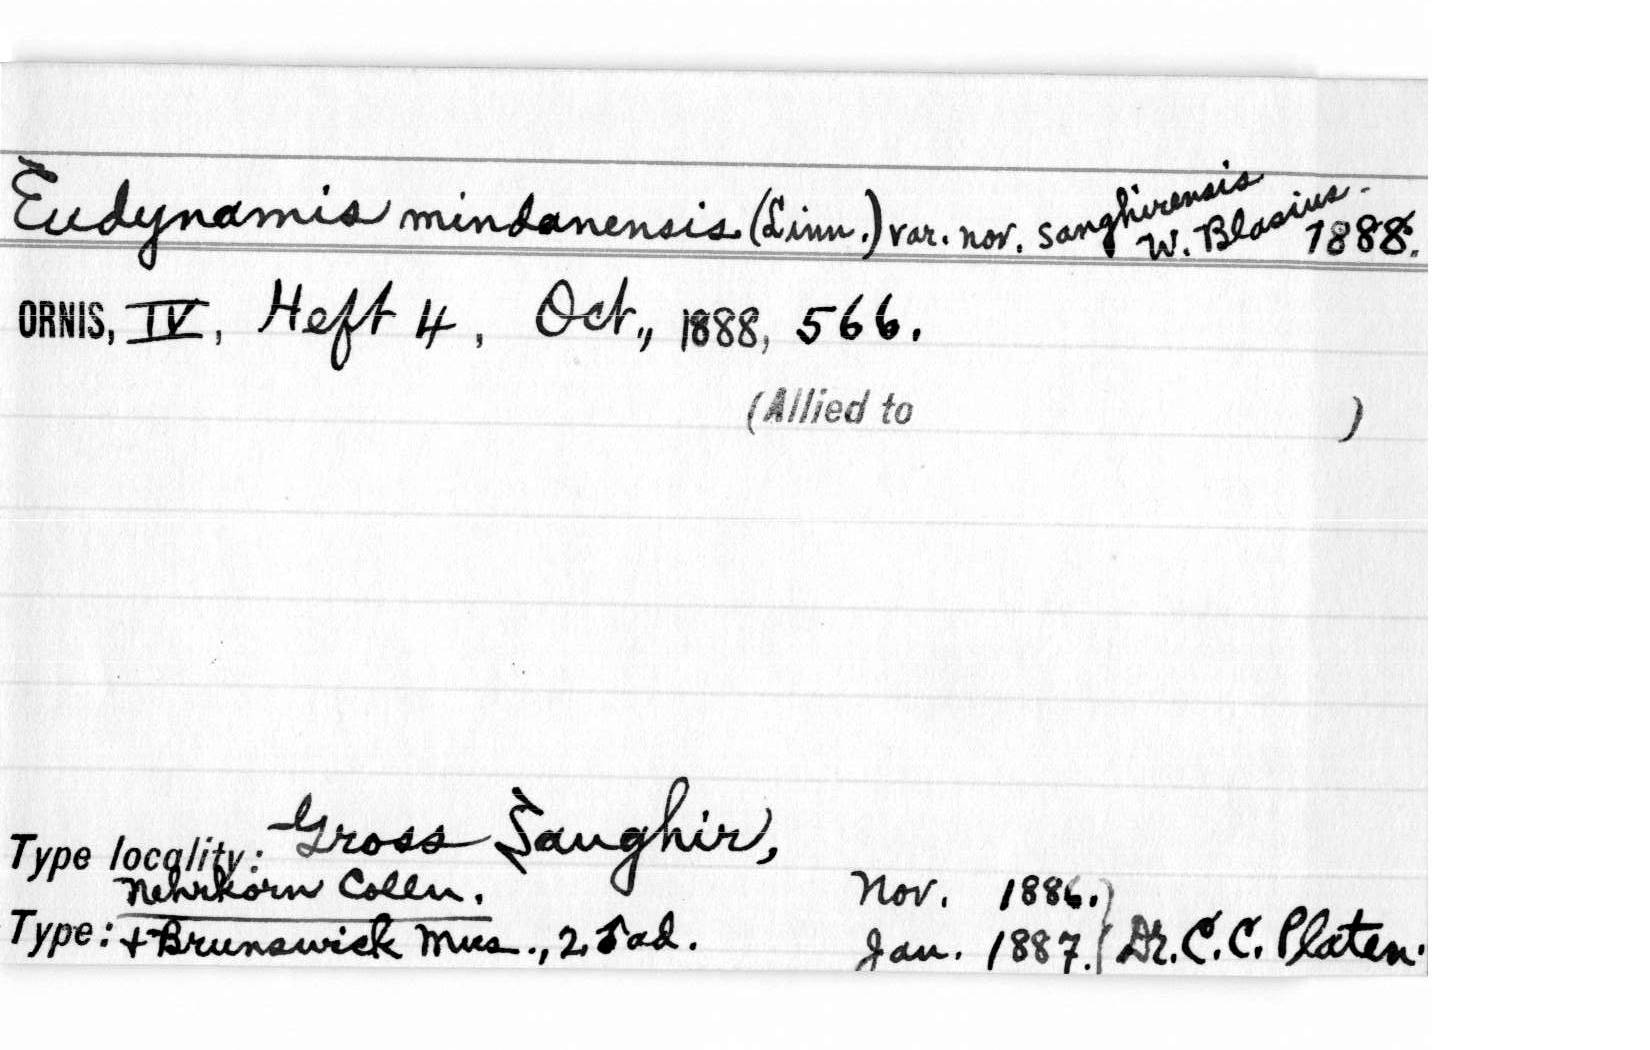 Eudynamis mindanensis (Linn.) var. nov. sanghirensis
W. Blasius. 1888.
ORNIS, IV, Heft 4, Oct., 1888, 566.
(Allied to )
Type locality: Gross Sanghir,
Nehrkorn Colln. Nov. 1886.
Type: + Brunswick Mus., 2 ad. Jan. 1887. Dr. C. C. Platen.